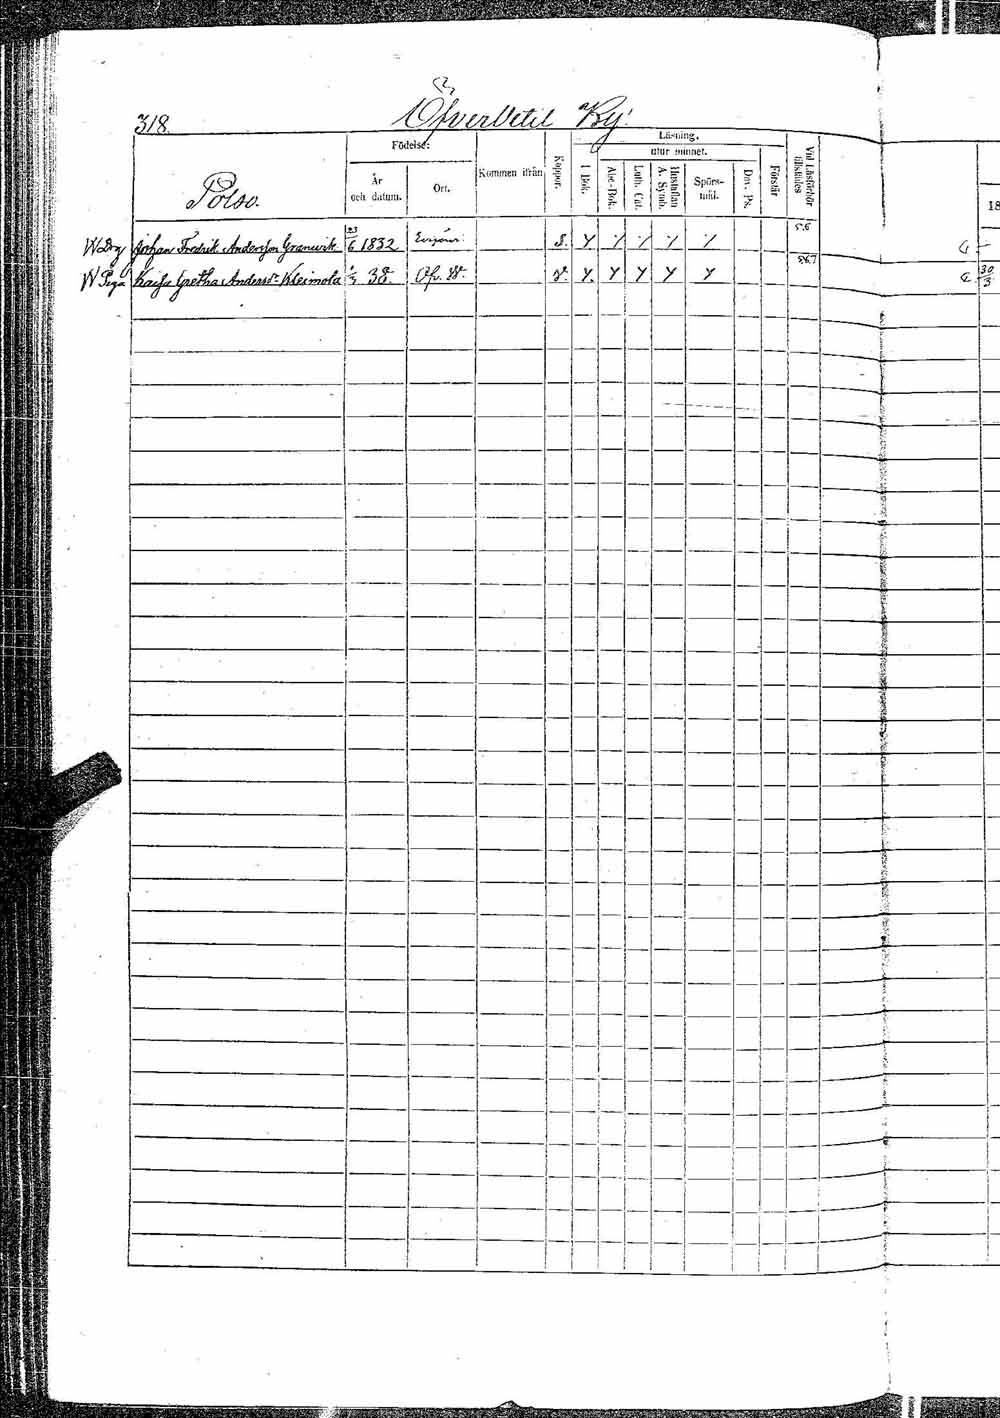 318.
Öfvervetil By.
Polso.
Födelse:
År och datum.
Ort.
Kommen ifrån
Koppor.
Läsning,
utur minnet.
I Bok.
Abc-Bok.
Luth. Cat.
Hustaflan A. Symb.
Spörsmål.
Dav. Ps.
Förstår
Vid Läsförhör tillstädes
18
Johan Fredrik Andersson Granvik 23/6 1832 S. 56
Piga Kaisa Gretha Andersdr Kleimola 38. Öfv. W. v. 56.7
30/3